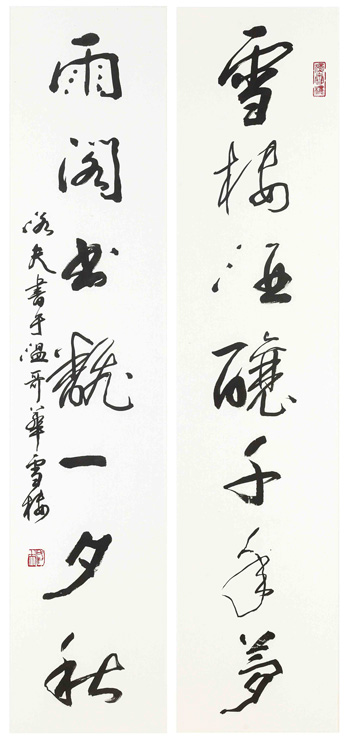 雪樓酒釀千年夢
雨閣書飜一夕秋
洛夫書于溫哥華雪樓